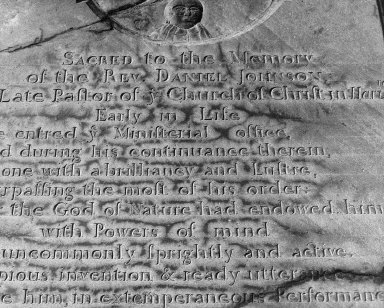 Sacred to the Memory
of the Rev. Daniel Johnson,
Late Pastor of yͤ Church of Christ in Harv
Early in Life
e entred yͤ Ministerial office,
d during his continuance therein,
one with a brilliancy and Lustre,
urpassing the most of his order:
the God of Nature had endowed him
with Powers of mind
uncommonly sprightly and active.
pious invention & ready utterence
e him, in extemperaneous Performance